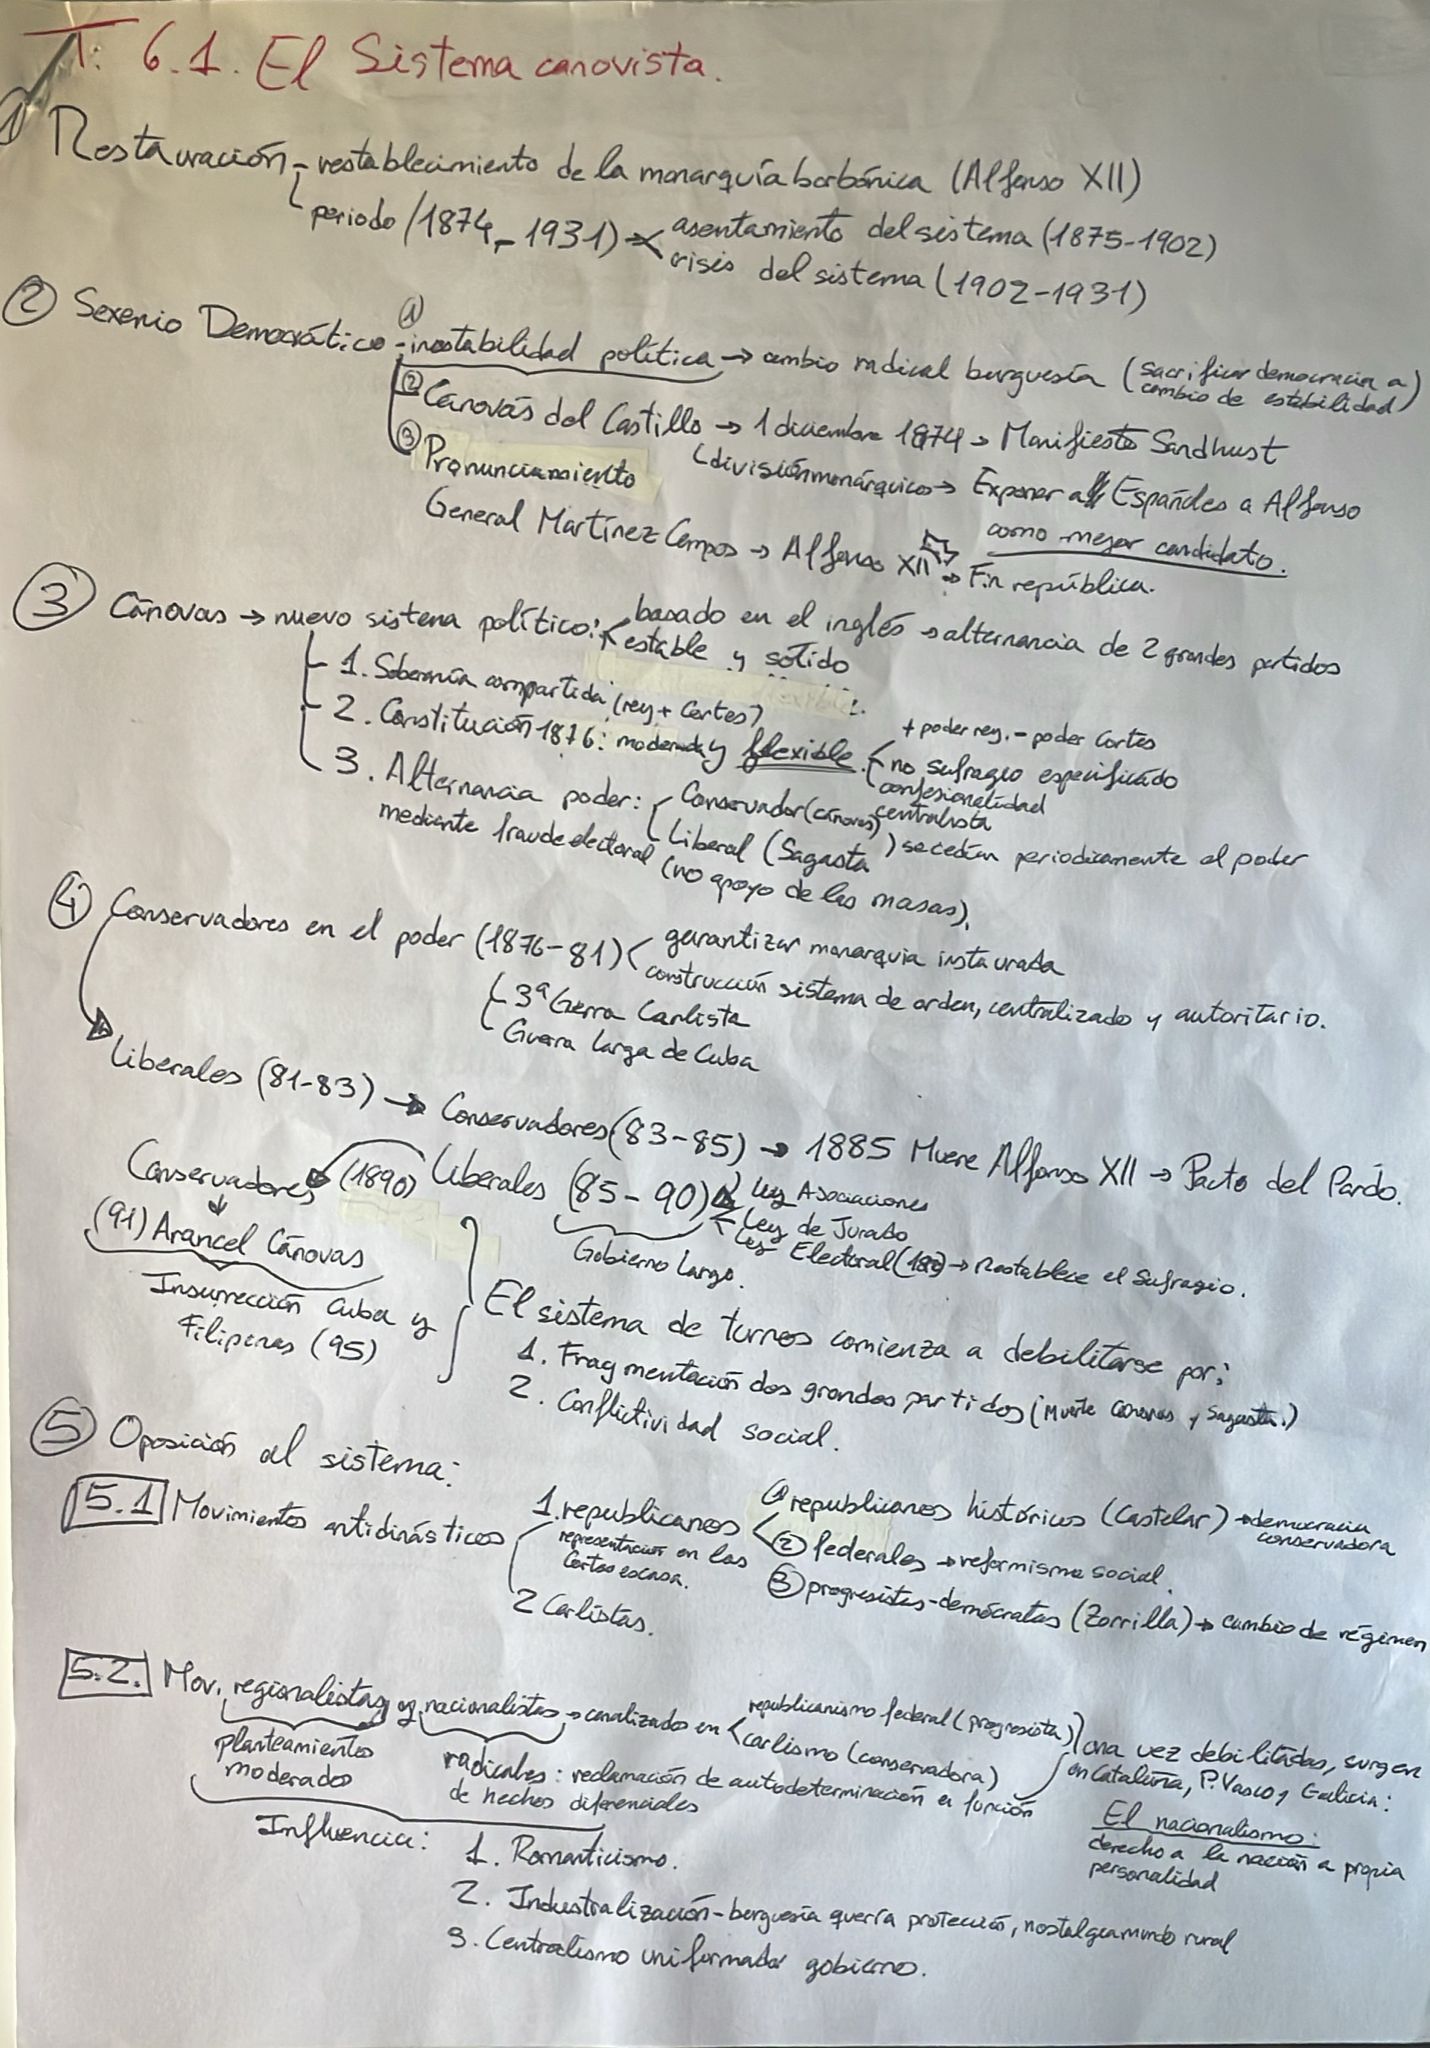 T: 6.1. El Sistema canovista.
1 Restauración - restablecimiento de la monarquía borbónica (Alfonso XII)
periodo (1874 - 1931) asentamiento del sistema (1875-1902)
crisis del sistema (1902-1931)
2 Sexenio Democrático 1 - inestabilidad política → cambio radical burguesía (sacrificar democracia a
cambio de estabilidad)
2 Cánovas del Castillo → 1 diciembre 1874 → Manifiesto Sandhust
(división monárquicos → Exponer a Españoles a Alfonso
como mejor candidato.
3 Pronunciamiento
General Martínez Campos → Alfonso XII → Fin república.
3 Cánovas → nuevo sistema político: basado en el inglés → alternancia de 2 grandes partidos
estable y sólido
1. Soberanía compartida (rey + Cortes)
2. Constitución 1876: moderada y flexible. + poder rey. - poder Cortes
no sufragio especificado
confesionalidad
centralista
3. Alternancia poder: Conservador (Cánovas)
Liberal (Sagasta) se cedían periodicamente el poder
mediante fraude electoral (no apoyo de las masas).
4 Conservadores en el poder (1876-81) garantizar monarquia instaurada
construcción sistema de orden, centralizado y autoritario.
3ª Gerra Carlista
Guerra larga de Cuba
Liberales (81-83) → Conservadores (83-85) → 1885 Muere Alfonso XII → Pacto del Pardo.
Conservadores (1890) Liberales (85-90) Ley Asociaciones
Ley de Jurado
Ley Electoral → Restablece el Sufragio.
Gobierno Largo.
(91) Arancel Cánovas
Insurrección Cuba y
Filipinas (95)
El sistema de turnos comienza a debilitarse por:
1. Fragmentación dos grandes partidos (Muerte Cánovas y Sagasta.)
2. Conflictividad social.
5 Oposición al sistema:
5.1 Movimientos antidinásticos
1. republicanos
representación en las
Cortes escasa.
1 republicanos históricos (Castelar) → democracia
conservadora
2 federales → reformismo social.
3 progresistas-demócratas (Zorrilla) → cambio de régimen
2 Carlistas.
5.2. Mov. regionalistas y nacionalistas → canalizados en republicanismo federal (progresista)
carlismo (conservadora)
una vez debilitadas, surgen
en Cataluña, P. Vasco y Galicia:
planteamientos
moderados
radicales: reclamación de autodeterminación en función
de hechos diferenciales
El nacionalismo:
derecho a la nación a propia
personalidad
Influencia: 1. Romanticismo.
2. Industralización - burguesía querría protección, nostalgia mundo rural
3. Centralismo uniformador gobierno.